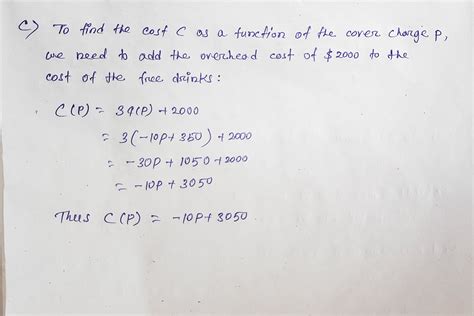 c) To find the cost C as a function of the cover charge p,
we need to add the overhead cost of $2000 to the
cost of the free drinks:
C(P) = 3q(P) + 2000
= 3(-10P + 350) + 2000
= -30P + 1050 + 2000
= -10P + 3050
Thus C(P) = -10P + 3050